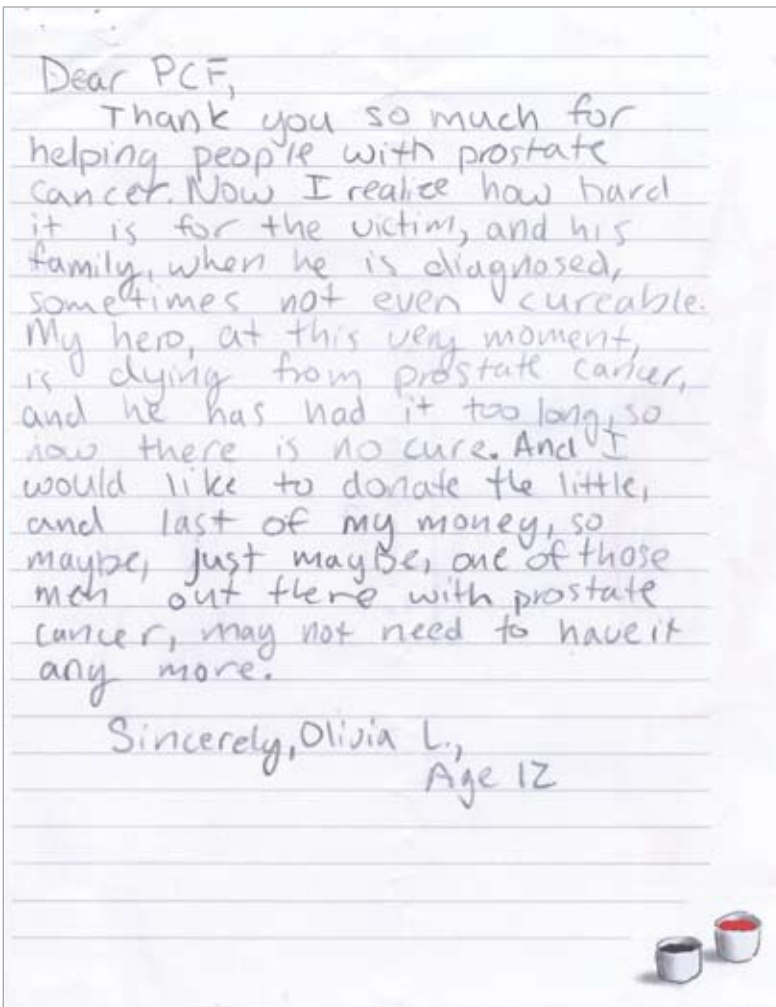 Dear PCF,
Thank you so much for
helping people with prostate
cancer. Now I realize how hard
it is for the victim, and his
family, when he is diagnosed,
sometimes not even cureable.
My hero, at this very moment,
is dying from prostate cancer,
and he has had it too long, so
now there is no cure. And I
would like to donate the little,
and last of my money, so
maybe, just maybe, one of those
men out there with prostate
cancer, may not need to have it
any more.
Sincerely, Olivia L.,
Age 12